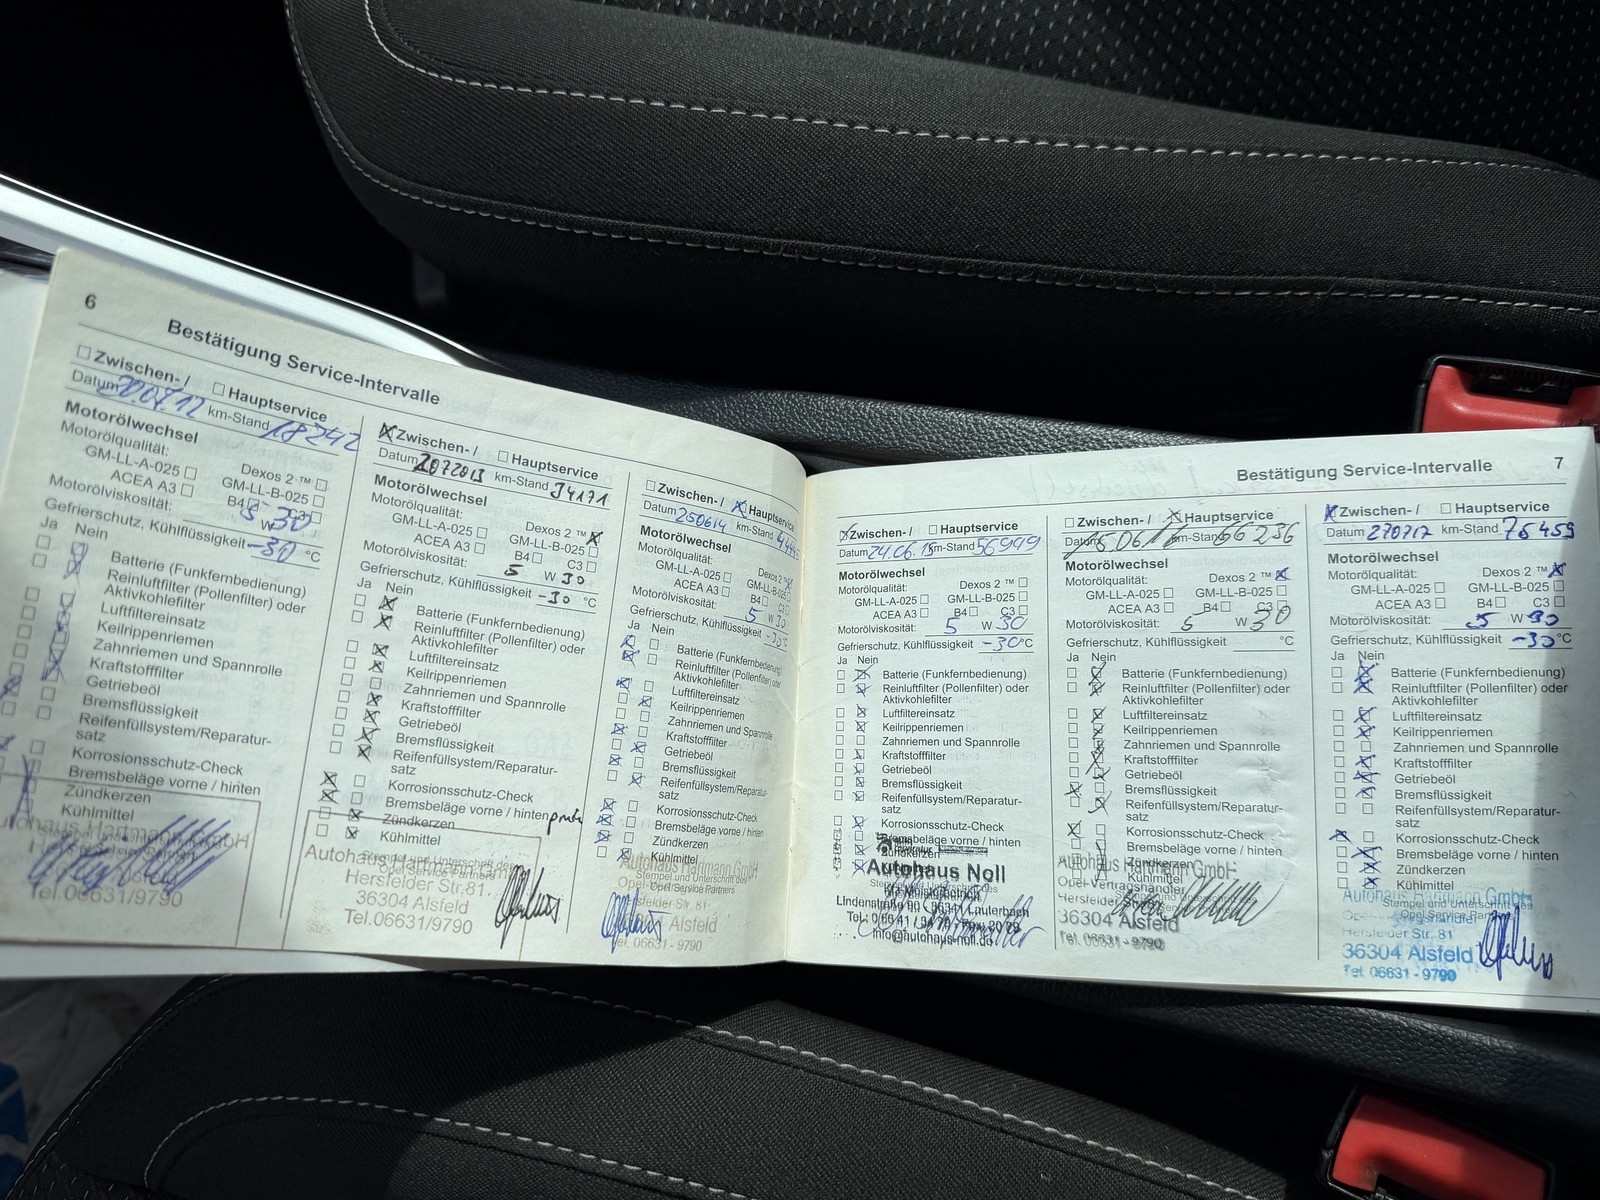 6
Bestätigung Service-Intervalle
Zwischen- / Hauptservice
Datum 200712 km-Stand 18242
Motorölwechsel
Motorölqualität: Dexos 2 ™
GM-LL-A-025 GM-LL-B-025
ACEA A3 B4 C3
Motorölviskosität: 5 W 30
Gefrierschutz, Kühlflüssigkeit -30 °C
Ja Nein
Batterie (Funkfernbedienung)
Reinluftfilter (Pollenfilter) oder
Aktivkohlefilter
Luftfiltereinsatz
Keilrippenriemen
Zahnriemen und Spannrolle
Kraftstofffilter
Getriebeöl
Bremsflüssigkeit
Reifenfüllsystem/Reparatur-
satz
Korrosionsschutz-Check
Bremsbeläge vorne / hinten
Zündkerzen
Kühlmittel
Autohaus Hartmann GmbH
Tel.06631/9790
Zwischen- / Hauptservice
Datum 2072013 km-Stand 34171
Motorölwechsel
Motorölqualität: Dexos 2 ™
GM-LL-A-025 GM-LL-B-025
ACEA A3 B4 C3
Motorölviskosität: 5 W 30
Gefrierschutz, Kühlflüssigkeit -30 °C
Ja Nein
Batterie (Funkfernbedienung)
Reinluftfilter (Pollenfilter) oder
Aktivkohlefilter
Luftfiltereinsatz
Keilrippenriemen
Zahnriemen und Spannrolle
Kraftstofffilter
Getriebeöl
Bremsflüssigkeit
Reifenfüllsystem/Reparatur-
satz
Korrosionsschutz-Check
Bremsbeläge vorne / hinten
Zündkerzen
Kühlmittel
Autohaus Hartmann GmbH
Stempel und Unterschrift des
Opel Service Partners
Hersfelder Str.81
36304 Alsfeld
Tel.06631/9790
Zwischen- / Hauptservice
Datum 250614 km-Stand
Motorölwechsel
Motorölqualität: Dexos 2 ™
GM-LL-A-025 GM-LL-B-025
ACEA A3 B4 C3
Motorölviskosität: 5 W 30
Gefrierschutz, Kühlflüssigkeit -30°C
Ja Nein
Batterie (Funkfernbedienung)
Reinluftfilter (Pollenfilter) oder
Aktivkohlefilter
Luftfiltereinsatz
Keilrippenriemen
Zahnriemen und Spannrolle
Kraftstofffilter
Getriebeöl
Bremsflüssigkeit
Reifenfüllsystem/Reparatur-
satz
Korrosionsschutz-Check
Bremsbeläge vorne / hinten
Zündkerzen
Kühlmittel
Autohaus Hartmann GmbH
Stempel und Unterschrift des
Opel Service Partners
Hersfelder Str. 81
36304 Alsfeld
Tel. 06631 - 9790
Bestätigung Service-Intervalle 7
Zwischen- / Hauptservice
Datum 24.06.15 km-Stand 56949
Motorölwechsel
Motorölqualität: Dexos 2 ™
GM-LL-A-025 GM-LL-B-025
ACEA A3 B4 C3
Motorölviskosität: 5 W 30
Gefrierschutz, Kühlflüssigkeit -30°C
Ja Nein
Batterie (Funkfernbedienung)
Reinluftfilter (Pollenfilter) oder
Aktivkohlefilter
Luftfiltereinsatz
Keilrippenriemen
Zahnriemen und Spannrolle
Kraftstofffilter
Getriebeöl
Bremsflüssigkeit
Reifenfüllsystem/Reparatur-
satz
Korrosionsschutz-Check
Bremsbeläge vorne / hinten
Zündkerzen
Autohaus Noll
Lindenstraße 90 36341 Lauterbach
info@autohaus-noll.de
Zwischen- / Hauptservice
Datum km-Stand 66236
Motorölwechsel
Motorölqualität: Dexos 2 ™
GM-LL-A-025 GM-LL-B-025
ACEA A3 B4 C3
Motorölviskosität: 5 W 30
Gefrierschutz, Kühlflüssigkeit °C
Ja Nein
Batterie (Funkfernbedienung)
Reinluftfilter (Pollenfilter) oder
Aktivkohlefilter
Luftfiltereinsatz
Keilrippenriemen
Zahnriemen und Spannrolle
Kraftstofffilter
Getriebeöl
Bremsflüssigkeit
Reifenfüllsystem/Reparatur-
satz
Korrosionsschutz-Check
Bremsbeläge vorne / hinten
Zündkerzen
Kühlmittel
Autohaus Hartmann GmbH
Opel-Vertragshändler
Hersfelder Str. 81
36304 Alsfeld
Tel. 06631 - 9790
Zwischen- / Hauptservice
Datum 270717 km-Stand 75459
Motorölwechsel
Motorölqualität: Dexos 2 ™
GM-LL-A-025 GM-LL-B-025
ACEA A3 B4 C3
Motorölviskosität: 5 W 30
Gefrierschutz, Kühlflüssigkeit -30°C
Ja Nein
Batterie (Funkfernbedienung)
Reinluftfilter (Pollenfilter) oder
Aktivkohlefilter
Luftfiltereinsatz
Keilrippenriemen
Zahnriemen und Spannrolle
Kraftstofffilter
Getriebeöl
Bremsflüssigkeit
Reifenfüllsystem/Reparatur-
satz
Korrosionsschutz-Check
Bremsbeläge vorne / hinten
Zündkerzen
Kühlmittel
Autohaus Hartmann GmbH
Stempel und Unterschrift des
Opel Service Partners
Hersfelder Str. 81
36304 Alsfeld
Tel. 06631 - 9790